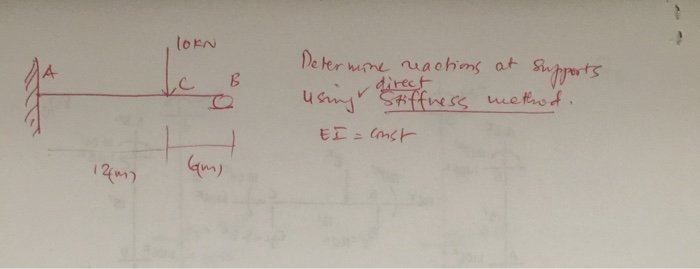 10KN
A
C
B
12(m)
6(m)
Determine reactions at supports
direct
using Stiffness method.
EI = const